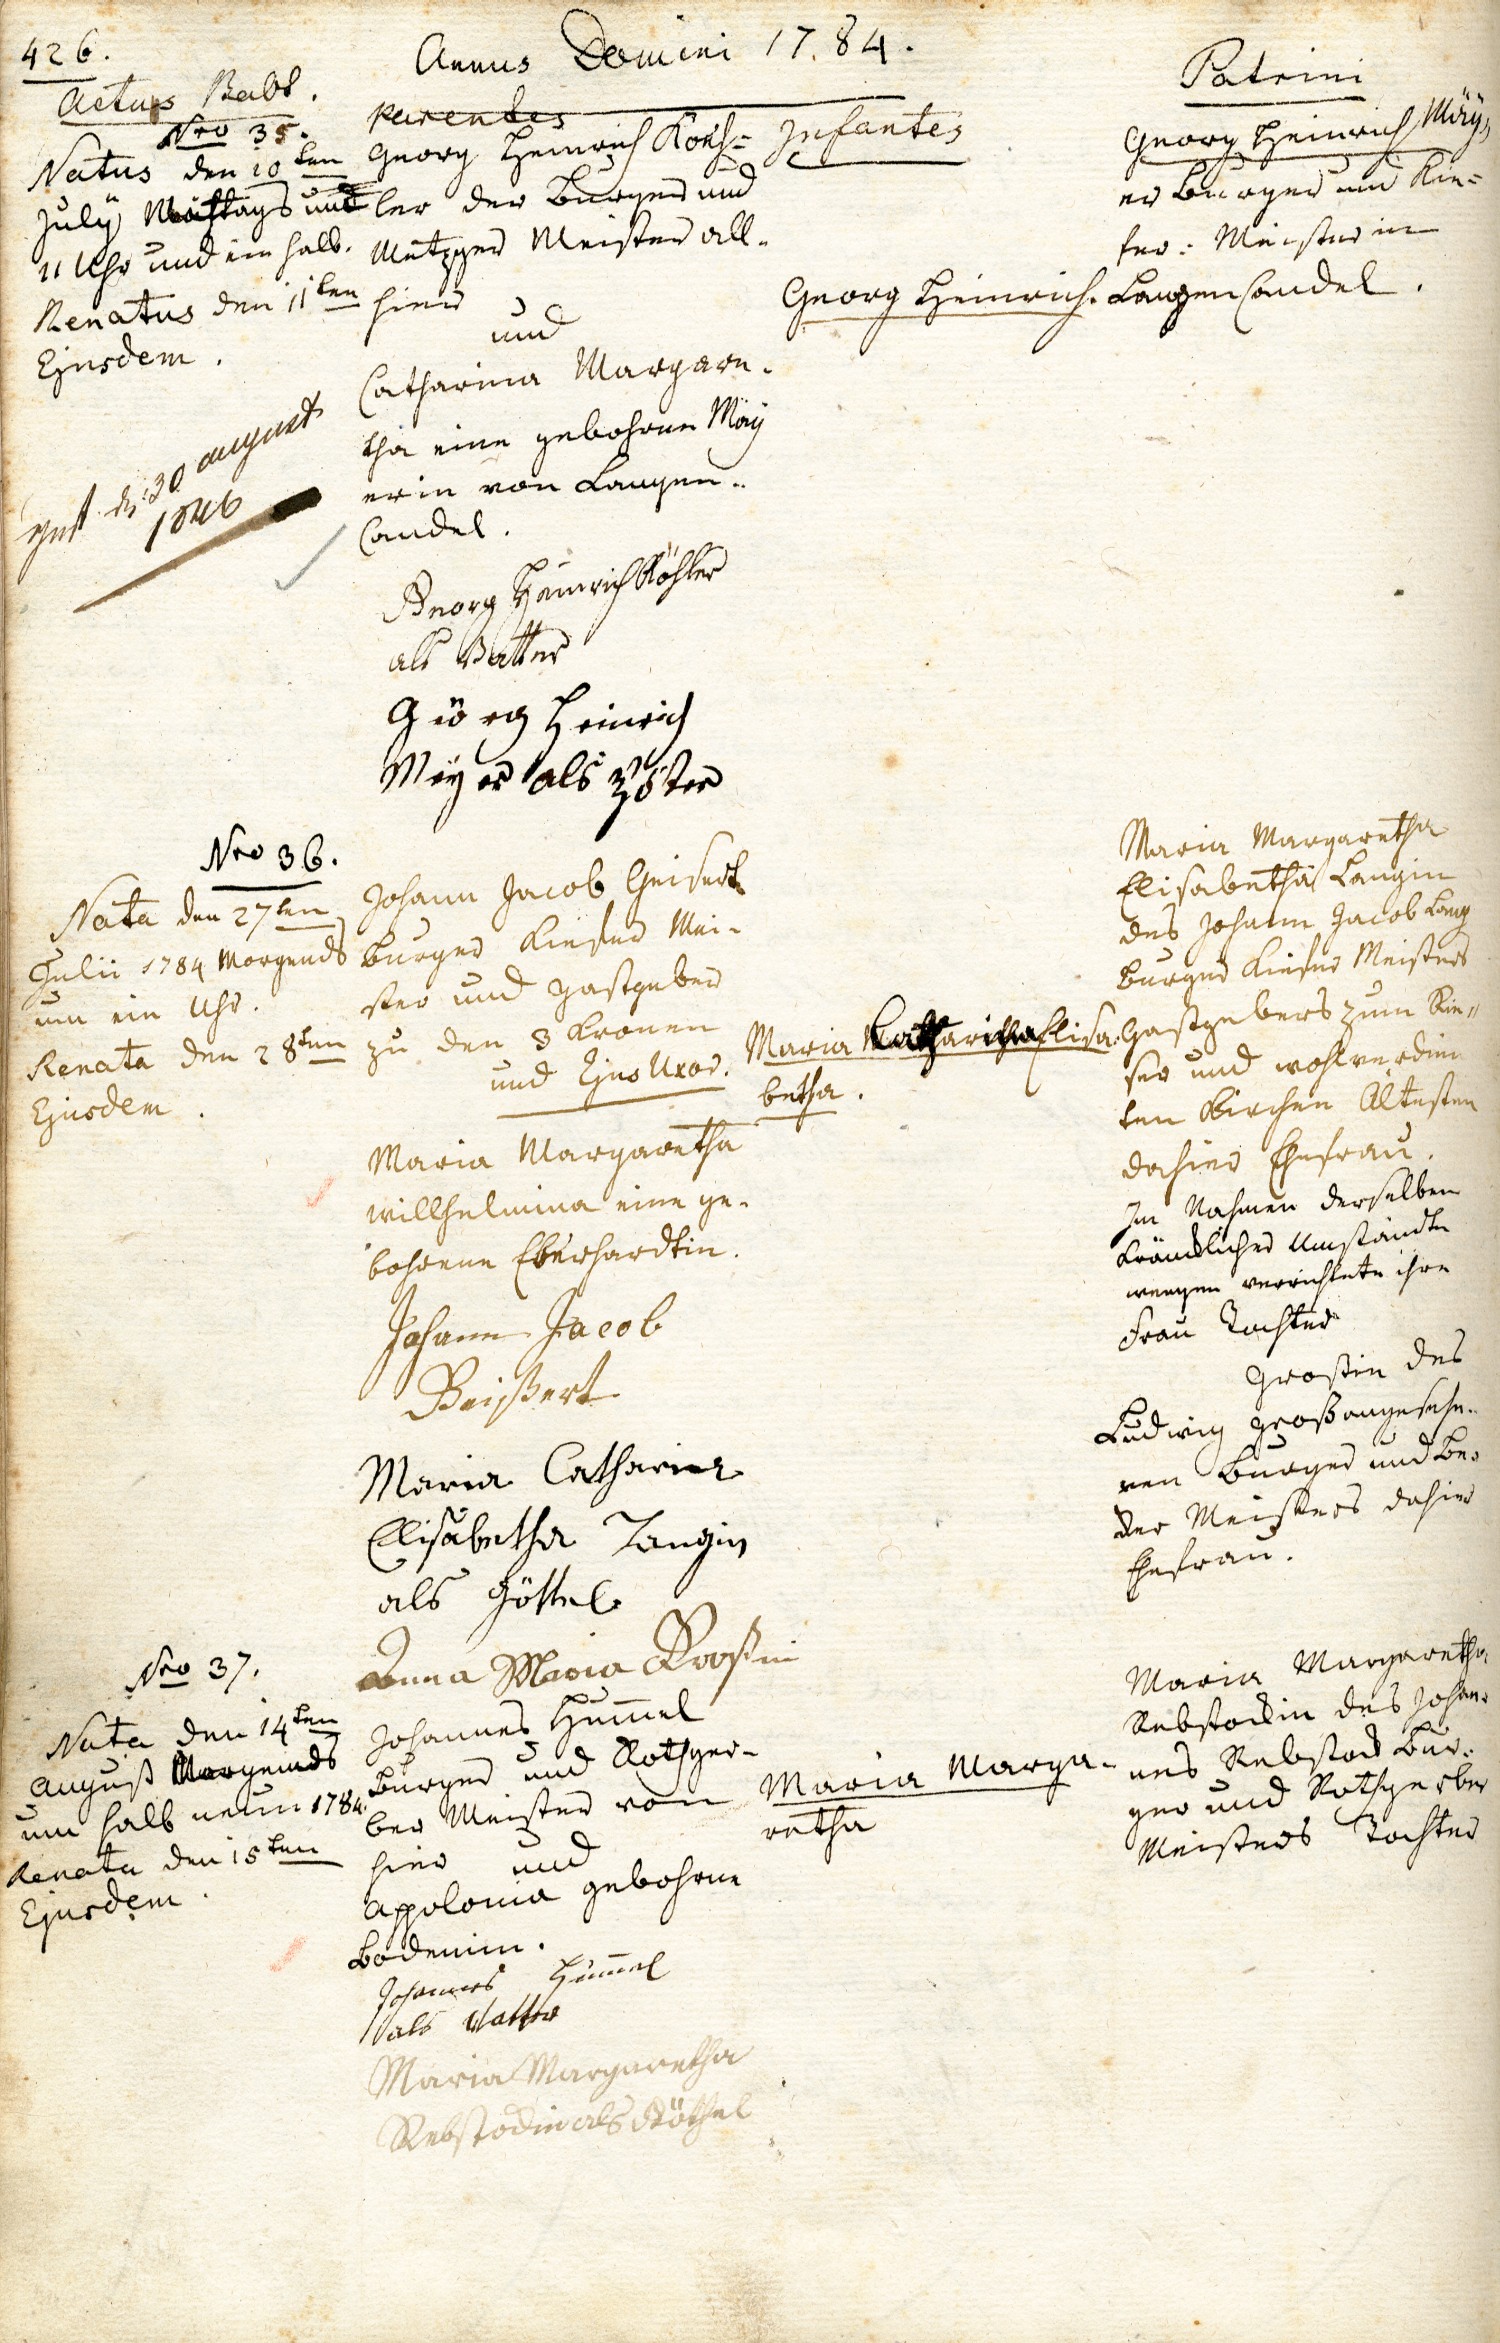 426.
Annus Domini 1784.
Actus Babt.
Parentes
Infantes
Patrini
Nro 35.
Natus den 10ten
July Nachtags und
11 Uhr und ein halb.
Renatus den 11ten
Ejusdem.
gest d. 30 august
1846
Georg Heinrich Köh=
ler der Burger und
Metzger Meister all-
hier
und
Catharina Margare-
tha eine gebohrne May
erin von Langen-
Candel.
Georg Heinrich Köhler
als Vatter
Georg Heinrich
Meyer als
Georg Heinrich.
Georg Heinrich May,
er Burger und Kie=
fer: Meister in
Langen Candel.
Nro 36.
Nata den 27ten
Julii 1784 Morgends
um ein Uhr.
Renata den 28ten
Ejusdem.
Johann Jacob Geisert
Burger Kiefer Mei-
ster und Gastgeber
zu den 3 Kronen
und Ejus Uxor.
Maria Margaretha
Willhelmina eine ge-
bohrene Eberhardtin.
Johann Jacob
Geißert
Maria Catharina
Elisabetha Langin
als Göttel
Anna Maria Großin
Maria Catharina Elisa-
betha.
Maria Margaretha
Elisabetha Langin
des Johann Jacob Lang
Burger Kiefer Meisters
Gastgebers zum Rie-
ser und wohlverdien
ten Kirchen Ältesten
dahier Ehefrau.
Im Nahmen derselben
kräncklicher Umstände
wegen verrichtete ihre
Frau Tochter
Großin des
Ludwig Groß angesehe-
nen Burger und Be-
cker Meisters dahier
Ehefrau.
Nro 37.
Nata den 14ten
August Morgends
um halb neun 1784.
Renata den 15ten
Ejusdem.
Johannes Hummel
Burger und Rothger-
ber Meister von
hier und
Appolonia gebohrne
Bodemin.
Johannes Hummel
als Vatter
Maria Margaretha
Rebstockin als Göthel
Maria Marga-
retha
Maria Margaretha
Rebstockin des Johan-
nes Rebstock Bur-
ger und Rothgerber
Meisters Tochter